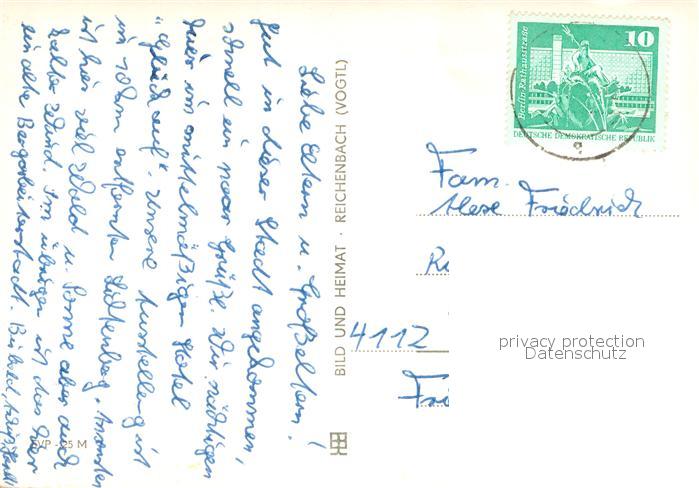 Liebe Eltern u. Großeltern!
Gut in dieser Stadt angekommen,
schnell ein paar Grüße. Wir nächtigen
hier im mittelmäßigen Hotel
"Glück auf". Unsere Ausstellung ist
im 10 km entfernten
ist hier viel Wald u. Sonne aber auch
kalter Wind. Im übrigen ist das hier
ein alte Bergarbeiterstadt. Bis bald,
BILD UND HEIMAT · REICHENBACH (VOGTL)
25 M
10
Berlin-Rathausstraße
DEUTSCHE DEMOKRATISCHE REPUBLIK
Fam.
Friedrich
4112
privacy protection
Datenschutz